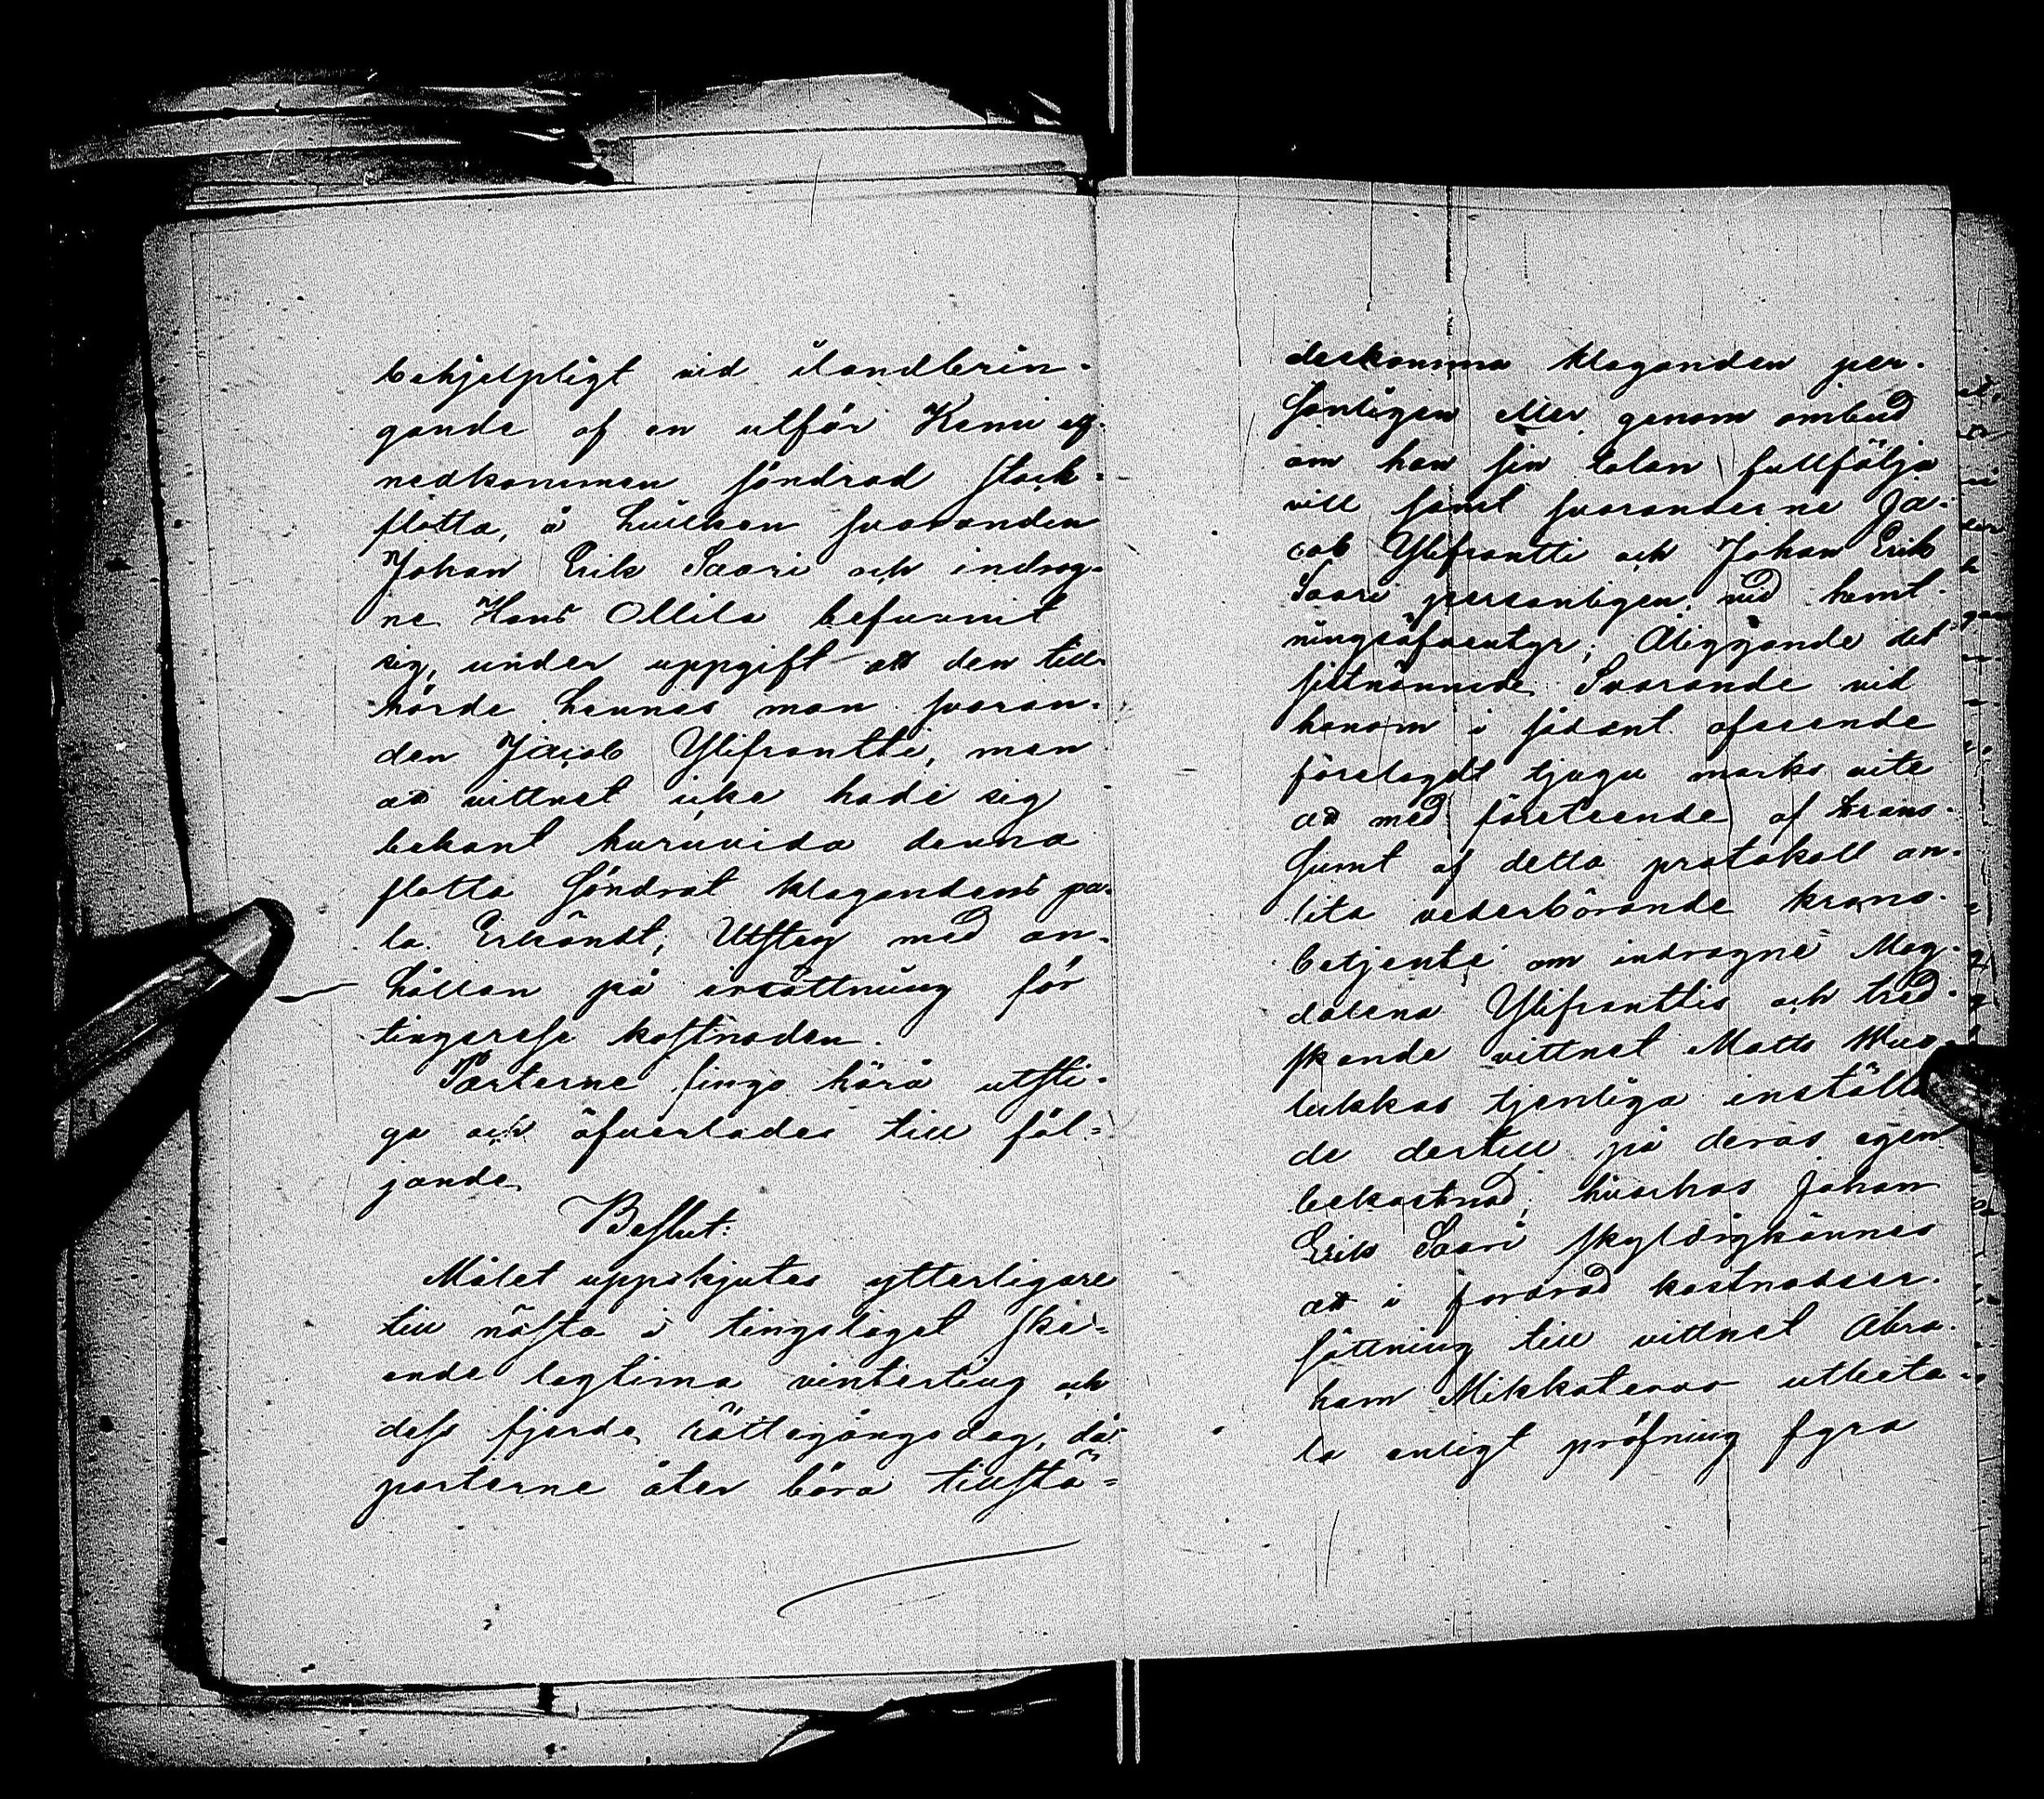 behjelpligt vid ilandbrin-
gande af en utför Kemi elf
nedkommen söndrad stock-
flotta, å hvilken svaranden
Johan Erik Saari och indrag-
ne Hans Ollila befunnit
sig, under uppgift att den till-
hörde hennes man svaran-
den Jacob Ylifrantti, men
att vittnet icke hade sig
bekant huruvida denna
flotta söndrat klagandens pa-
ta. Erkändt; Utsteg med an-
hållan på ersättning för
tingsrese kostnaden.
Parterne fingo härå utsti-
ga och öfverlades till föl-
jande
Beslut:
Målet uppskjutes ytterligare
till nästa i tingslaget ske-
ende lagtima vinterting och
dess fjerde rättegångsdag, då
parterne åter böra tillstä-
deskomma klaganden per-
sonligen eller genom ombud
om han sin talan fullfölja
vill samt svaranderne Ja-
cob Ylifrantti och Johan Erik
Saari personligen vid hemt-
ningsäfventyr; Åliggande det
sistnämnde Svarande vid
honom i sådant afseende
förelagdt tjugu marks vite
att med företeende af trans-
sumt af detta protokoll an-
lita vederbörande krono-
betjente om indragne Mag-
dalena Ylifranttis och tred-
skande vittnet Matts
lukkas tjenliga inställ
de dertill på deras egen
bekostnad; hvarhos Johan
Erik Saari skyldigkännes
att i fordrad kostnadser-
sättning till vittnet Abra-
ham Mikkateras utbeta-
la enligt pröfning fyra